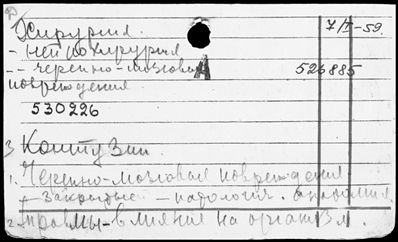 Хирургия. 7/I-59.
- нейрохирургия
-- черепно-мозговые 526885
повреждения
А
530226
3 Контузии.
1. Черепно-мозговая повреждения
+ закрытые - патология. анатомия
2. травмы - влияние на организм.